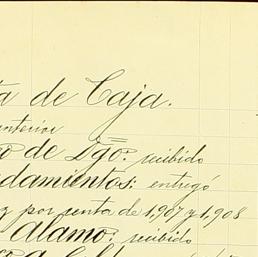 ta de Caja.
anterior
de Dgo. recibido
damientos: entregó
por renta de 1,907 y 1,908
Alamo: recibido